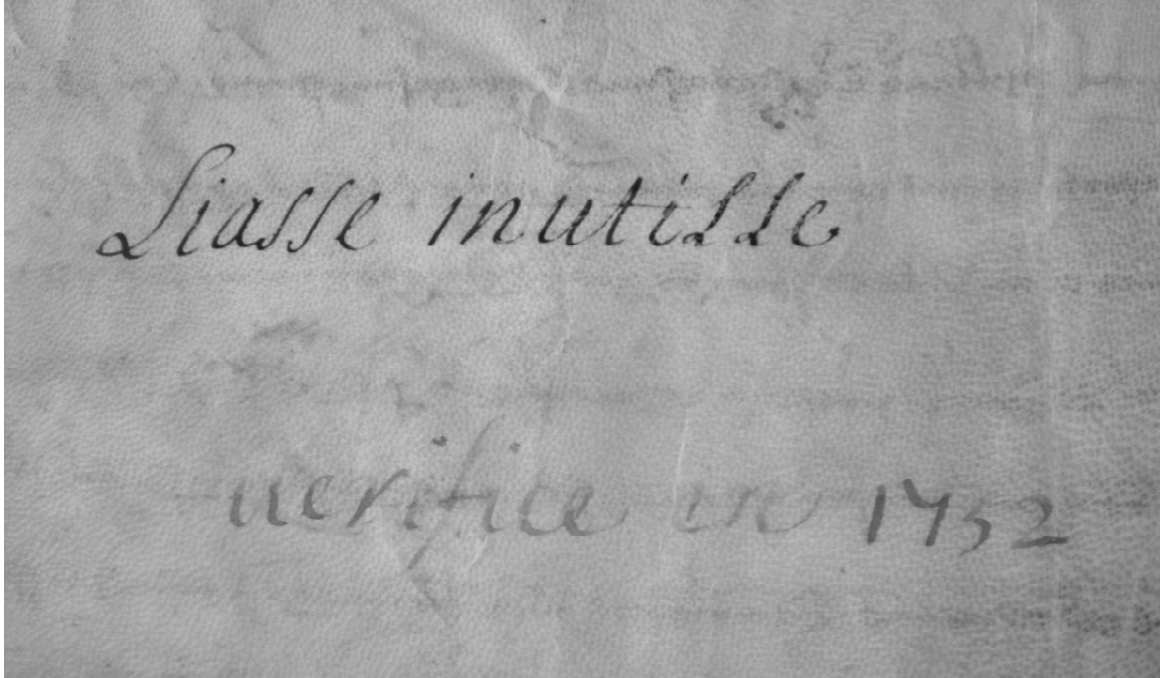 Liasse inutille
veriffiee en 1752